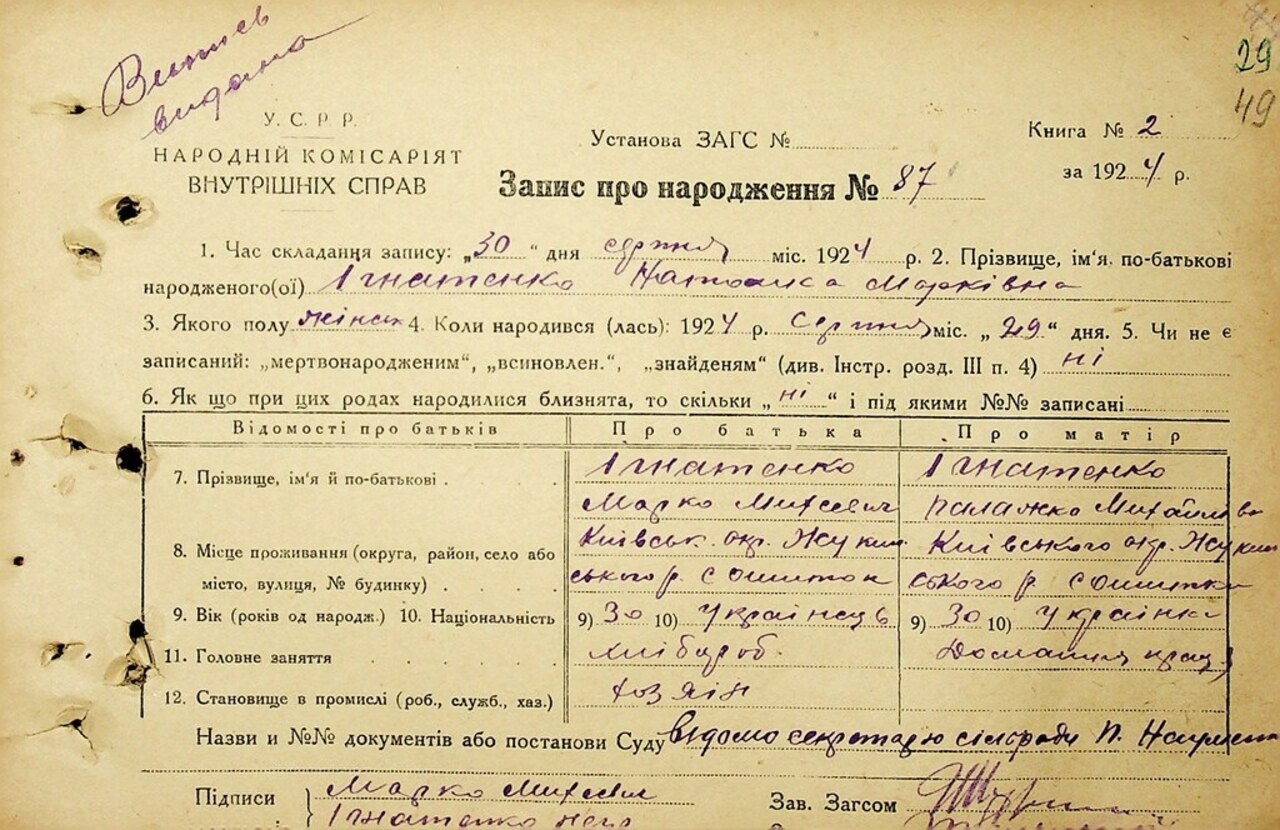 Випись
видана
29
49
У. С. Р. Р.
НАРОДНІЙ КОМІСАРІЯТ
ВНУТРІШНІХ СПРАВ
Установа ЗАГС №
Книга № 2
за 1924 р.
Запис про народження № 87
1. Час складання запису: „30“ дня серпня міс. 1924 р. 2. Прізвище, ім'я, по-батькові
народженого(ої) Ігнатенко Наталка Марківна
3. Якого полу жіноч 4. Коли народився (лась): 1924 р. Серпня міс. „29“ дня. 5. Чи не є
записаний: „мертвонародженим“, „всиновлен.“, „знайденям“ (див. Інстр. розд. III п. 4) ні
6. Як що при цих родах народилися близнята, то скільки „ні“ і під якими №№ записані
Відомості про батьків Про батька Про матір
7. Прізвище, ім'я й по-батькові Ігнатенко Ігнатенко
Марко Михеєвич Палажка Михайлів
8. Місце проживання (округа, район, село або Київськ. окр. Жукин Київського окр. Жукин
місто, вулиця, № будинку) ського р. с Ошиток ського р. с Ошитки
9. Вік (років од народж.) 10. Національність 9) 30 10) Українець 9) 30 10) Українка
11. Головне заняття хлібороб. Домашня прац
12. Становище в промислі (роб., служб., хаз.) хозяін
Назви и №№ документів або постанови Суду відомо секретарю сільради П.
Підписи Марко Михеєвич
Зав. Загсом
Ігнатенко